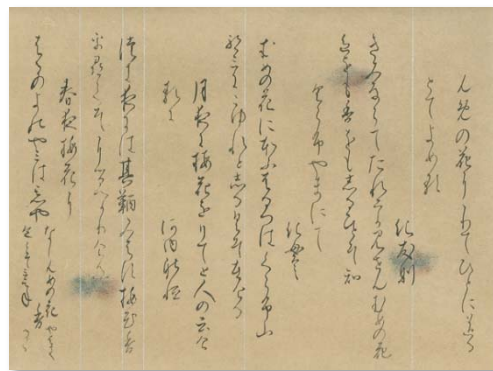 んめの花をりてひとにおくる
とてよめる
紀友則
きみならてたれにか見せんむめの花
色をも香をもしるひとそ知
くらふやまにて
紀貫之
むめの花にほふはるへはくらふ山
やみにこゆれとしるくそありける
月夜に梅花をりてと人の云け
れは
河内躬恒
月夜には其鞆みえす梅花香
乎尋てそしるへかりける
春夜梅花を
はるのよのやみはあやなしんめの花